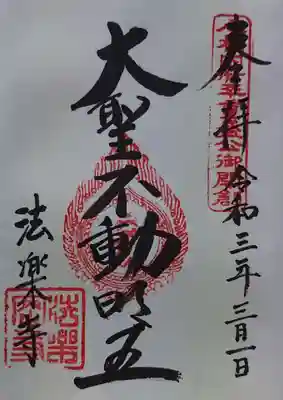 奉拝 令和三年三月一日
重盛公御開基
大聖不動明王
法楽寺